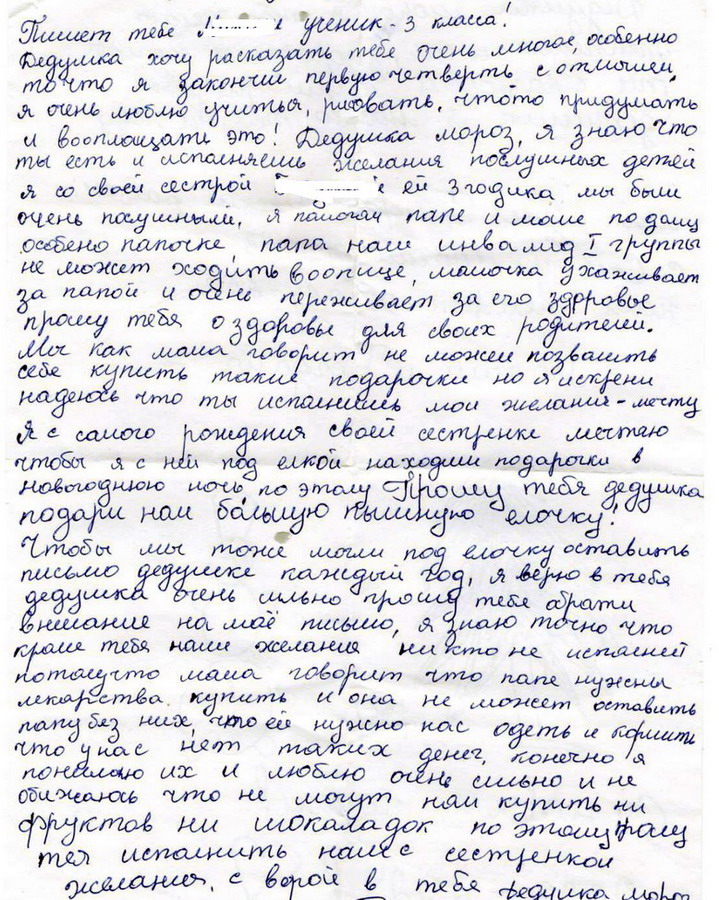 Пишет тебе М е ученик - 3 класса!
Дедушка хочу расказать тебе очень многое, особенно
то что я закончил первую четверть с отличием,
я очень люблю учиться, рисовать, что то придумать
и вооплощать это! Дедушка мороз, я знаю что
ты есть и исполняешь желания послушных детей
я со своей сестрой е ей 3 годика мы были
очень послушными, я помогаю папе и маме по дому
особено папочке, папа наш инвалид I группы
не может ходить вообще, мамочка ухаживает
за папой и очень переживает за его здоровье
прошу тебя о здоровье для своих родителей.
Мы как мама говорит не можем позволить
себе купить такие подарочки но я искрени
надеюсь что ты исполнишь мои желания - мечту
Я с самого рождения своей сестренке мечтаю
чтобы я с ней под елкой находили подарочки в
новогоднюю ночь, по этому Прошу тебя дедушка
подари нам большую пышную елочку!
Чтобы мы тоже могли под елочку оставить
письмо дедушке каждый год, я верю в тебя
дедушка очень сильно прошу тебе обрати
внимание на моё письмо, я знаю точно что
кроме тебя наши желания никто не исполнит
потомучто мама говорит что папе нужны
лекарства купить и она не может оставить
папу без них, что ей нужно нас одеть и кормить
что у нас нет таких денег, конечно я
понимаю их и люблю очень сильно и не
обижаюсь что не могут нам купить ни
фруктов ни шокаладок по этому прошу
тея исполнить наши с сестренкой
желания, с верой в тебя дедушка мороз